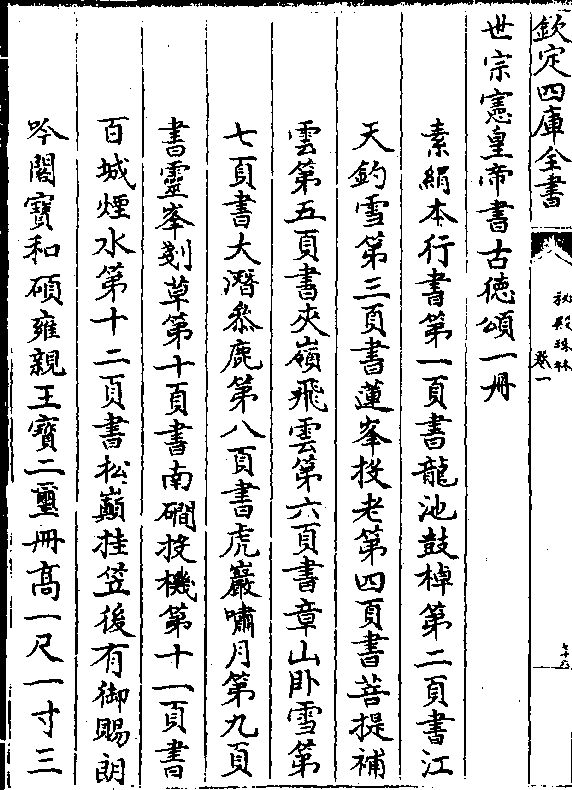 欽定四庫全書
秘殿珠林
卷一
世宗憲皇帝書古徳頌一冊
素絹本行書第一頁書龍池鼓棹第二頁書江
天釣雪第三頁書蓮峯投老第四頁書菩提補
雲第五頁書夾嶺飛雲第六頁書章山卧雪第
七頁書大潛叅鹿第八頁書虎巖嘯月第九頁
書靈峯剗草第十頁書南磵投機第十一頁書
百城煙水第十二頁書松巔挂笠後有御賜朗
吟閣寳和碩雍親王寳二璽冊髙一尺一寸三